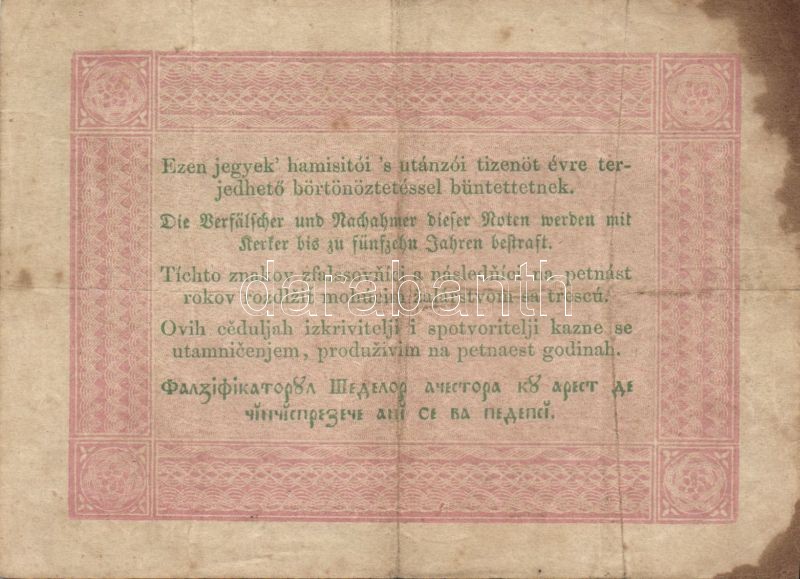 Ezen jegyek' hamisitói 's utánzói tizenöt évre ter-
jedhető börtönöztetéssel büntettetnek.
Die Verfälscher und Nachahmer dieser Noten werden mit
Kerker bis zu fünfzehn Jahren bestraft.
Tíchto znakov zfalssovňíci a následňíci na petnást
rokov rozdlžit mohúcim žalárstvom sa trescú.
darabanth
Ovih cěduljah izkrivitelji i spotvoritelji kazne se
utamničenjem, produživim na petnaest godinah.
Фалꙁіфікаторꙋл Шеделор ачестора кꙋ арест де
чінчіспреꙁече ані се ва педепсі.